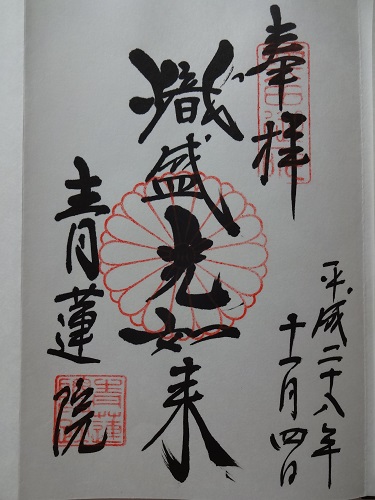 奉拝
平成二十八年
十一月四日
熾盛光如来
青蓮院